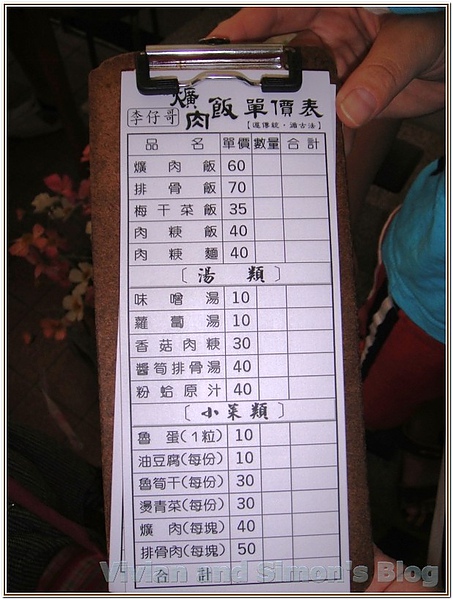 李仔哥 爌肉飯 單價表
【遵傳統‧遵古法】
品名 單價 數量 合計
爌肉飯 60
排骨飯 70
梅干菜飯 35
肉粳飯 40
肉粳麵 40
〔湯類〕
味噌湯 10
蘿蔔湯 10
香菇肉粳 30
醬筍排骨湯 40
粉蛤原汁 40
〔小菜類〕
魯蛋(1粒) 10
油豆腐(每份) 10
魯筍干(每份) 30
燙青菜(每份) 30
爌肉(每塊) 40
排骨肉(每塊) 50
合計
Vivian and Simon's Blog